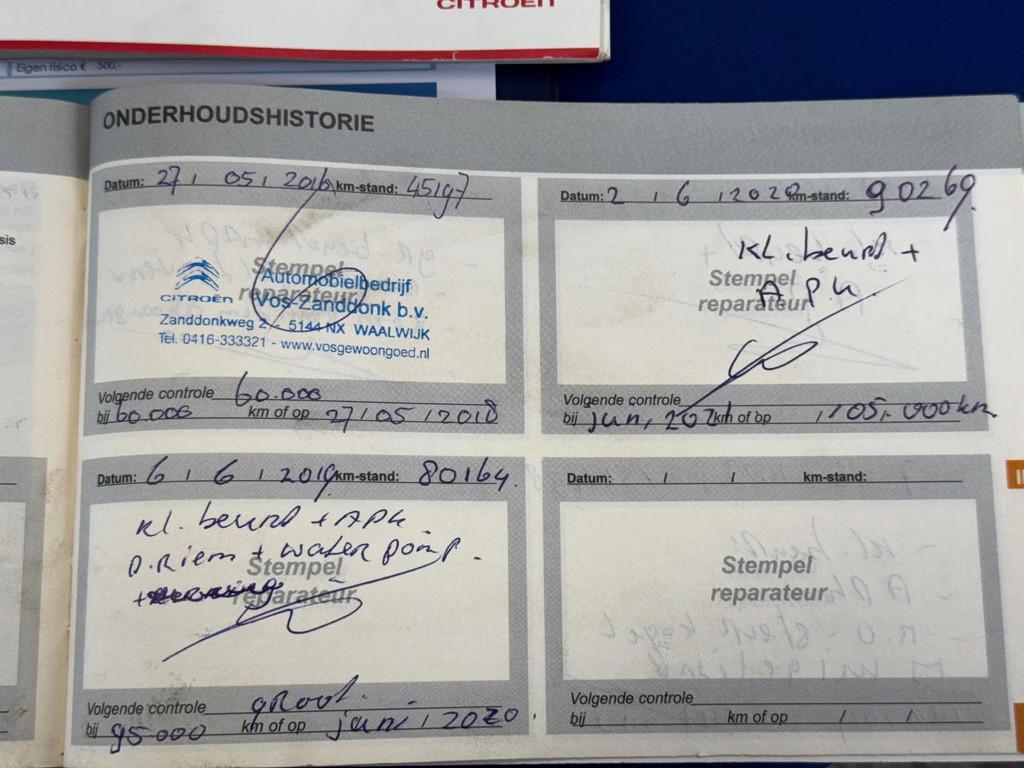 CITROËN
Eigen risico € 500,-
ONDERHOUDSHISTORIE
sis
Datum: 27 / 05 / 2016 km-stand: 45197
Stempel
reparateur
CITROËN
Automobielbedrijf
Vos-Zanddonk b.v.
Zanddonkweg 2 - 5144 NX WAALWIJK
Tel. 0416-333321 - www.vosgewoongoed.nl
Volgende controle 60.000
bij 60.000 km of op 27 / 05 / 2018
Datum: 2 / 6 / 2020 km-stand: 90269
Kl. beurt +
APK
Stempel
reparateur
Volgende controle
bij jun, 2021 km of op / 105.000 km
Datum: 6 / 6 / 2019 km-stand: 80164.
Kl. beurt + APK
D.Riem + waterpomp.
Stempel
reparateur
Volgende controle groot.
bij 95000 km of op juni / 2020.
Datum: / / km-stand:
Stempel
reparateur
Volgende controle
bij km of op / /